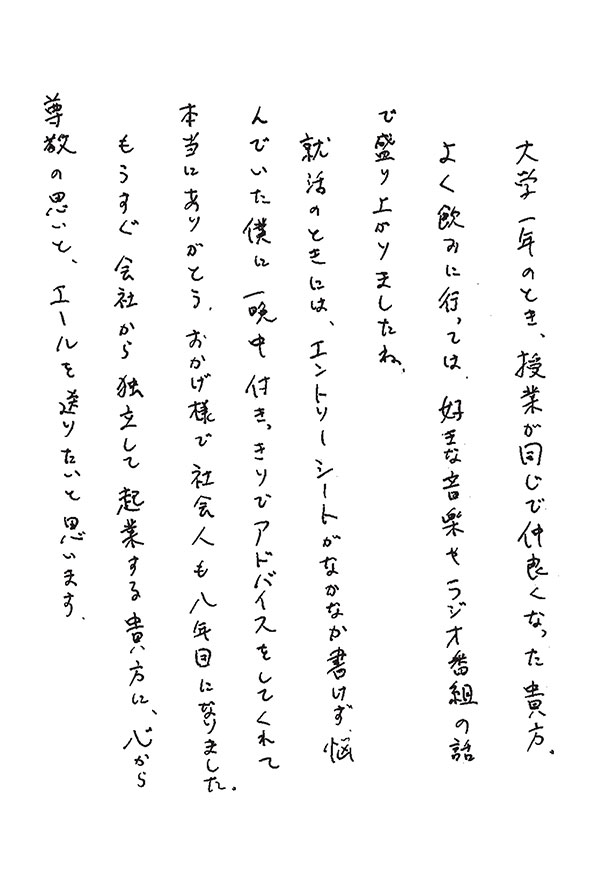 大学一年のとき、授業が同じで仲良くなった貴方。
よく飲みに行っては、好きな音楽やラジオ番組の話
で盛り上がりましたね。
就活のときには、エントリーシートがなかなか書けず、悩
んでいた僕に一晩中付きっきりでアドバイスをしてくれて
本当にありがとう。おかげ様で社会人も八年目になりました。
もうすぐ会社から独立して起業する貴方に、心から
尊敬の思いと、エールを送りたいと思います。